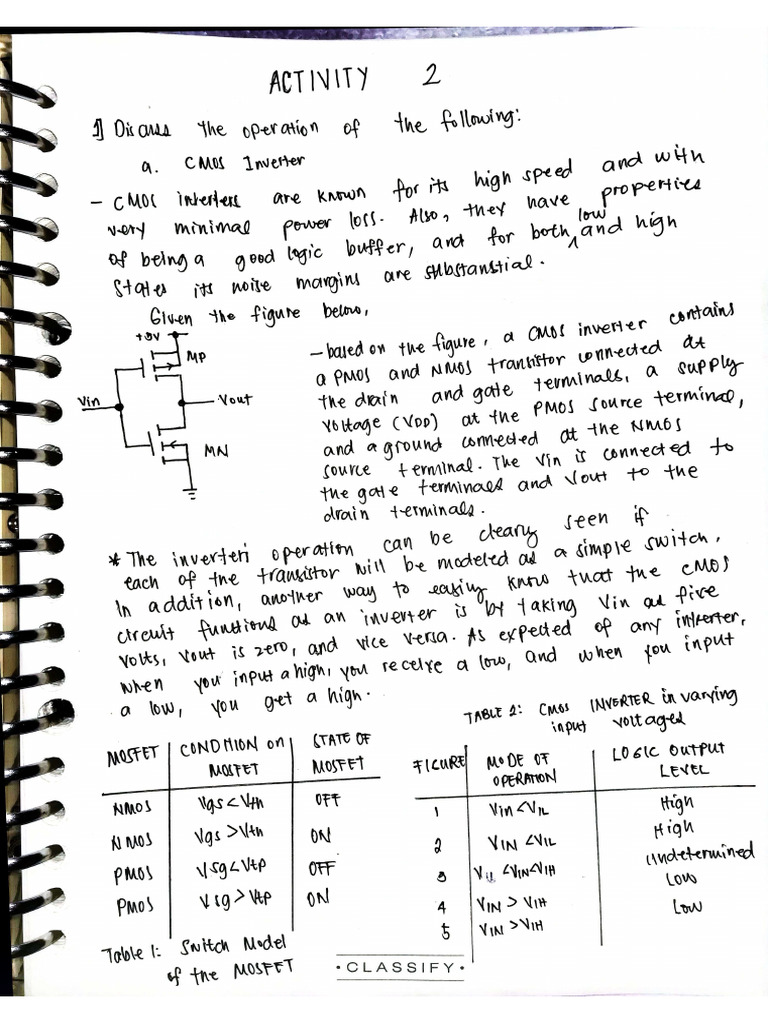 ACTIVITY 2
1] Discuss the operation of the following:
a. CMOS Inverter
- CMOS inverters are known for its high speed and with
very minimal power loss. Also, they have properties
of being a good logic buffer, and for both low and high
states its noise margins are substanstial.
Given the figure below,
+5V
MP
Vin
Vout
MN
- based on the figure, a CMOS inverter contains
a PMOS and NMOS transistor connected at
the drain and gate terminals, a supply
voltage (VDD) at the PMOS source terminal,
and a ground connected at the NMOS
source terminal. The Vin is connected to
the gate terminals and Vout to the
drain terminals.
* The inverteri operation can be cleary seen if
each of the transistor will be modeled as a simple switch.
In addition, another way to easily know that the CMOS
circuit functions as an inverter is by taking Vin as five
volts, Vout is zero, and vice versa. As expected of any inverter,
when you input a high, you receive a low, and when you input
a low, you get a high.
MOSFET | CONDITION on MOSFET | STATE OF MOSFET
NMOS | Vgs < Vtn | OFF
NMOS | Vgs > Vtn | ON
PMOS | Vsg < Vtp | OFF
PMOS | Vsg > Vtp | ON
Table 1: Switch Model
of the MOSFET
TABLE 2: CMOS INVERTER in varying
input voltages
FIGURE | MODE OF OPERATION | LOGIC OUTPUT LEVEL
1 | Vin < VIL | High
2 | VIN < VIL | High
3 | VIL < VIN < VIH | Undetermined
4 | VIN > VIH | Low
5 | VIN > VIH | Low
• CLASSIFY •